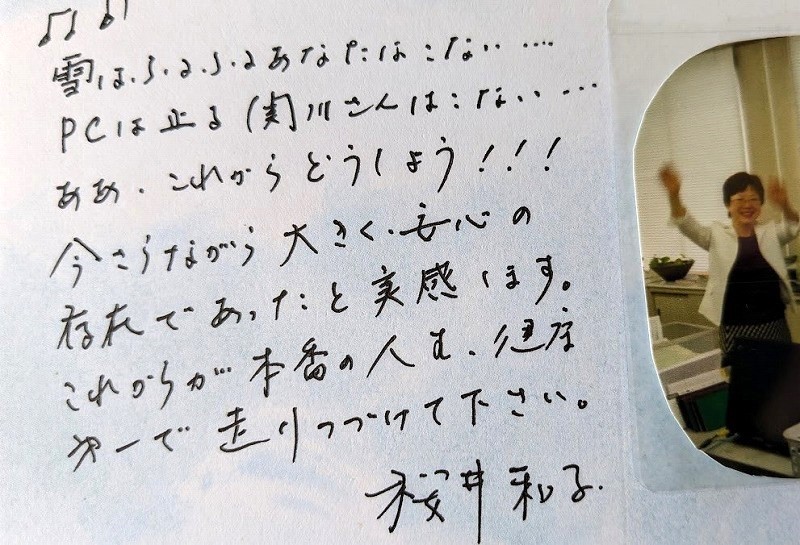 ♪♪♪
雪は、ふるふるあなたはこない‥‥
PCは止る 関川さんはこない‥‥
ああ、これからどうしよう！！！
今さらながら大きく、安心の
存在であったと実感します。
これからが本番の人生、健康
第一で走りつづけて下さい。
桜井和子.